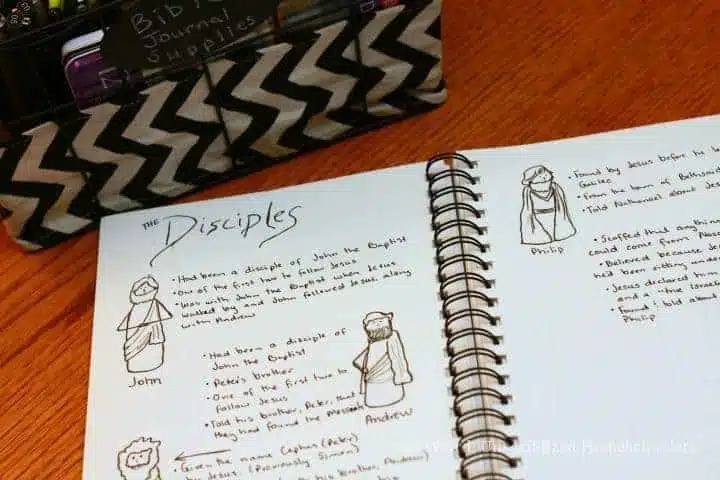 Bible
Journal
Supplies
THE Disciples
• Had been a disciple of John the Baptist
• One of the first two to follow Jesus
• Was with John the Baptist when Jesus
walked by and John followed Jesus along
with Andrew
John
• Had been a disciple of
John the Baptist
• Peter's brother
• One of the first two to
follow Jesus
• Told his brother, Peter, that
they had found the Messiah
Andrew
• Given the name Cephas (Peter)
by Jesus. (Previously Simon)
his brother, Andrew)
his
• Found by Jesus before he
Galilee
• From the town of Bethsaida
• Told Nathanael about
Philip
• Scoffed that anything
could come from
• Believed because
he'd been sitting under
• Jesus declared him
and a "true
• Found & told about
Philip
Homeschoolers